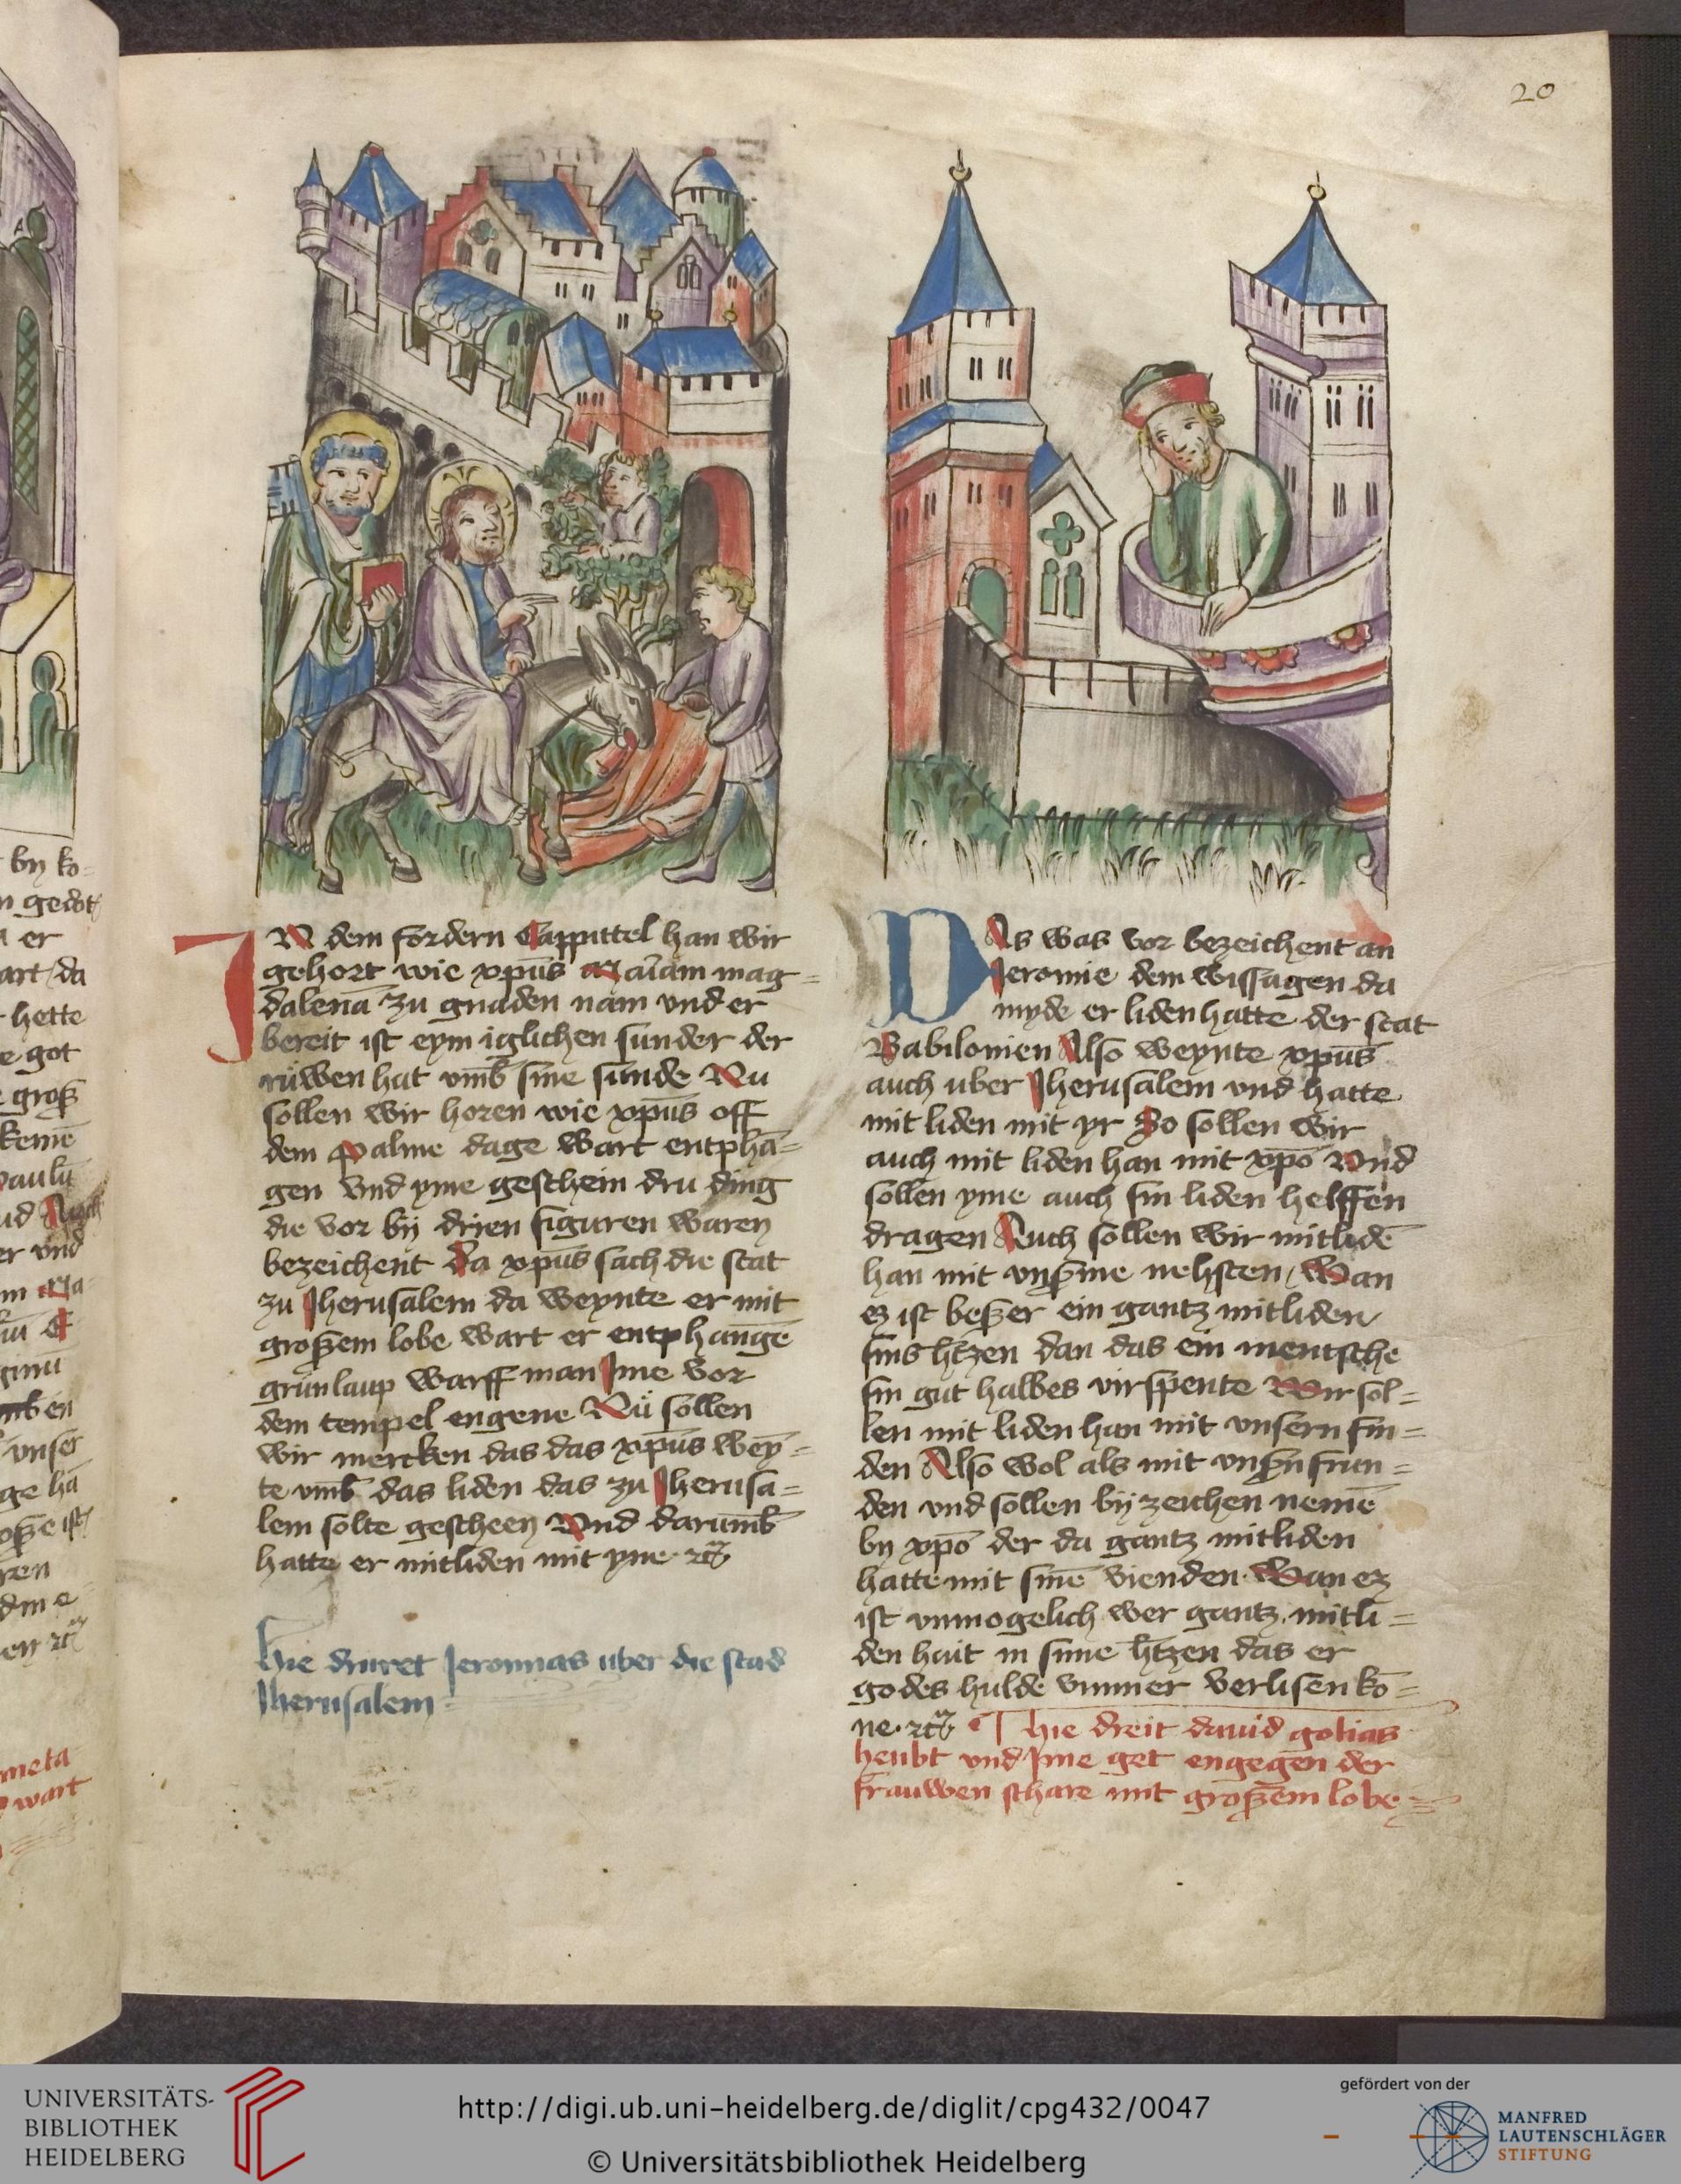 20
IN dem fordern Cappittel han wir
gehort wie xp̄us Mariam mag=
dalenā zu gnaden nam vnd er
bereit ist eym iglichen sunder der
ruwen hat vmb sine sunde Nu
sollen wir horen wie xp̄us off
dem palme dage wart entphā=
gen vnd yme geschein dru ding
die vor bij drien figuren waren
bezeichent da xp̄us sach die stat
zu Jherusalem da weynte er mit
großem lobe wart er entphangē
grun laup warff man Jme vor
dem tempel engene Nu sollen
wir mercken das das xp̄us weÿ=
te vmb das liden das zu Jherusa=
lem solte gescheen Vnd darumb
hatte er mitliden mit yme
Hie druret Jeromias uber die stad
Jherusalem
DAs was vor bezeichent an
Jeromie dem wissagen da
myde er liden hatte der stat
Babilonien Also weynte xp̄us
auch uber Jherusalem vnd hatte
mit liden mit yr So sollen wir
auch mit liden han mit xp̄o Vnd
sollen yme auch sin liden helffen
dragen Auch sollen wir mitlidē
han mit vnßme nehsten Wan
ez ist beßer ein gantz mitliden
sins htzen dan das ein mentsche
sin gut halbes virspente Wir sol=
len mit liden han mit vnsern fin=
den Also wol als mit vnßn frun=
den vnd sollen bij zeichen nemē
by xp̄o der da gantz mitliden
hatte mit sinē vienden Wan ez
ist vnmogelich wer gantz mitli=
den hait in sime htzen das er
godes hulde vmmer verlisen kō=
ne Hie dreit dauid golias
heubt vnd Jme get engegen der
frauwen schare mit großem lobe
by ko=
er
hette
got
groß
vnser
wart
UNIVERSITÄTS-
BIBLIOTHEK
HEIDELBERG
http://digi.ub.uni-heidelberg.de/diglit/cpg432/0047
© Universitätsbibliothek Heidelberg
gefördert von der
MANFRED
LAUTENSCHLÄGER
STIFTUNG